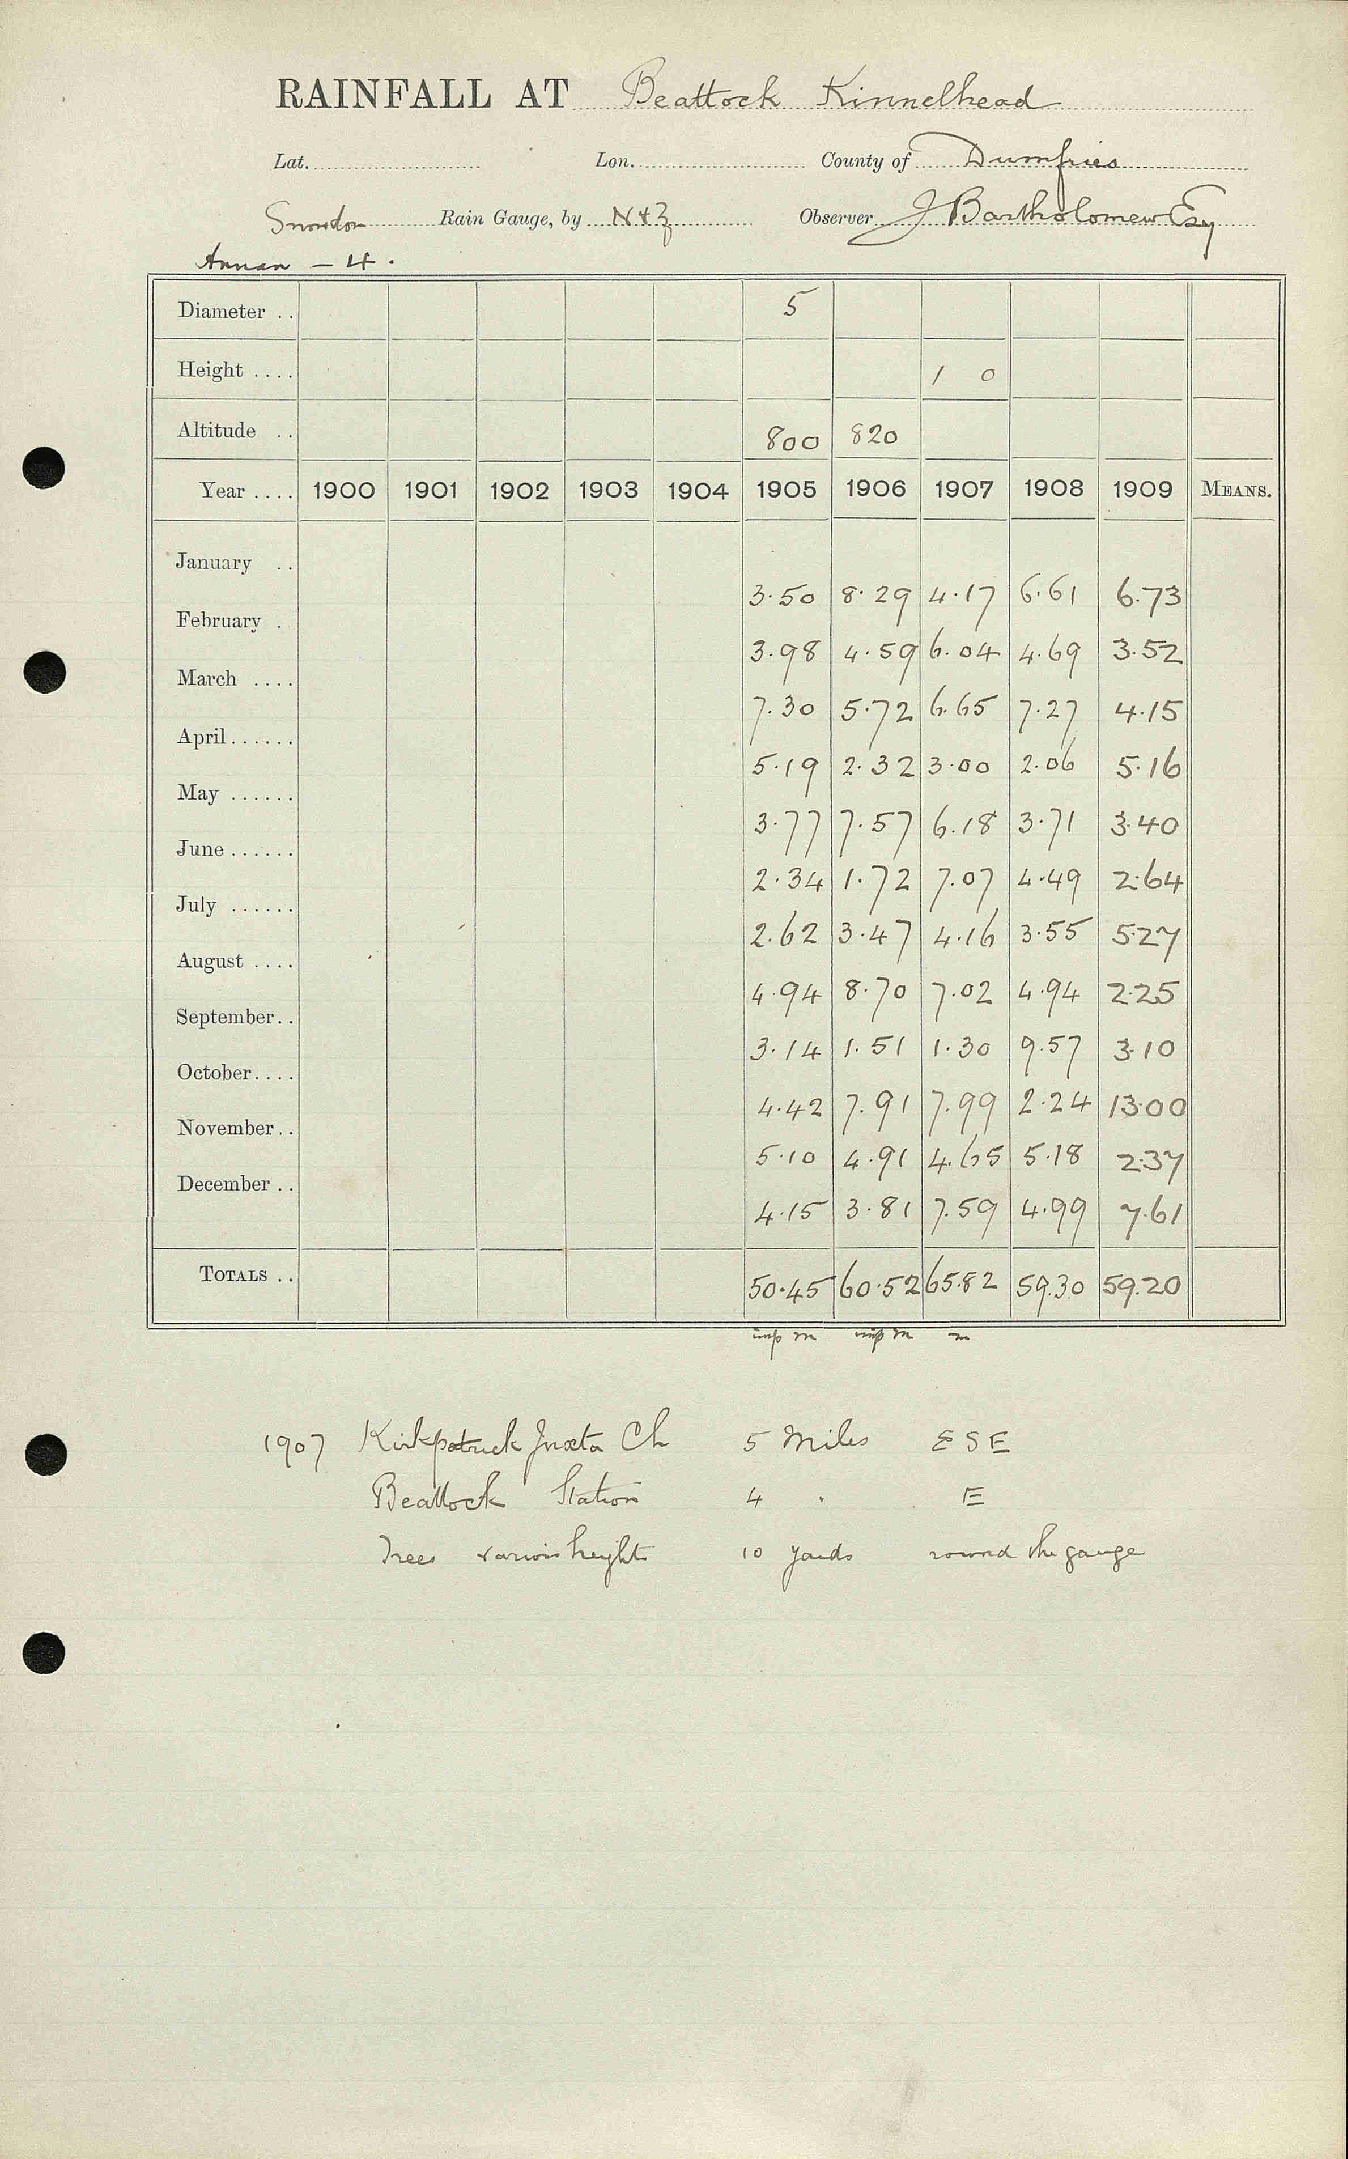 RAINFALL AT Beattock Kinnelhead
Lat. Lon. County of Dumfries
Snowdon Rain Gauge, by N & Z Observer J Bartholomew Esq
Annan - 4.
Diameter .. 5
Height .... 1 0
Altitude .. 800 820
Year .... 1900 1901 1902 1903 1904 1905 1906 1907 1908 1909 MEANS.
January .. 3.50 8.29 4.17 6.61 6.73
February . 3.98 4.59 6.04 4.69 3.52
March .... 7.30 5.72 6.65 7.27 4.15
April...... 5.19 2.32 3.00 2.06 5.16
May ...... 3.77 7.57 6.18 3.71 3.40
June ...... 2.34 1.72 7.07 4.49 2.64
July ...... 2.62 3.47 4.16 3.55 5.27
August .... 4.94 8.70 7.02 4.94 2.25
September.. 3.14 1.51 1.30 9.57 3.10
October.... 4.42 7.91 7.99 2.24 13.00
November.. 5.10 4.91 4.65 5.18 2.37
December .. 4.15 3.81 7.59 4.99 7.61
TOTALS .. 50.45 60.52 65.82 59.30 59.20
imp m imp m m
1907 Kirkpatrick Juxta Ch 5 Miles ESE
Beattock Station 4 " E
Trees various heights 10 yards round the gauge